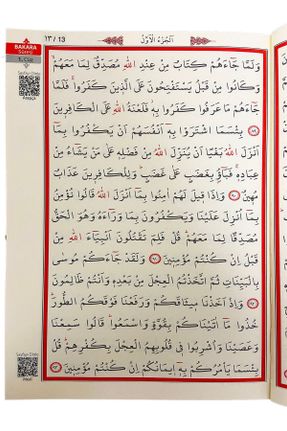 ١٣ / 13
اَلْجُزْءُ الْاَوَّلُ
BAKARA
Sûresi
1. Cüz
وَلَمَّا جَٓاءَهُمْ كِتَابٌ مِنْ عِنْدِ اللّٰهِ مُصَدِّقٌ لِمَا مَعَهُمْۙ
وَكَانُوا مِنْ قَبْلُ يَسْتَفْتِحُونَ عَلَى الَّذ۪ينَ كَفَرُواۚ فَلَمَّا
جَٓاءَهُمْ مَا عَرَفُوا كَفَرُوا بِه۪ۘ فَلَعْنَةُ اللّٰهِ عَلَى الْكَافِر۪ينَ
٨٩ بِئْسَمَا اشْتَرَوْا بِه۪ٓ اَنْفُسَهُمْ اَنْ يَكْفُرُوا بِمَٓا
اَنْزَلَ اللّٰهُ بَغْيًا اَنْ يُنَزِّلَ اللّٰهُ مِنْ فَضْلِه۪ عَلٰى مَنْ يَشَٓاءُ مِنْ
عِبَادِه۪ۚ فَبَٓاؤُ۫ بِغَضَبٍ عَلٰى غَضَبٍۜ وَلِلْكَافِر۪ينَ عَذَابٌ
مُه۪ينٌ ٩٠ وَاِذَا ق۪يلَ لَهُمْ اٰمِنُوا بِمَٓا اَنْزَلَ اللّٰهُ قَالُوا نُؤْمِنُ
بِمَٓا اُنْزِلَ عَلَيْنَا وَيَكْفُرُونَ بِمَا وَرَٓاءَهُ وَهُوَ الْحَقُّ
مُصَدِّقًا لِمَا مَعَهُمْۜ قُلْ فَلِمَ تَقْتُلُونَ اَنْبِيَٓاءَ اللّٰهِ مِنْ
قَبْلُ اِنْ كُنْتُمْ مُؤْمِن۪ينَ ٩١ وَلَقَدْ جَٓاءَكُمْ مُوسٰى
بِالْبَيِّنَاتِ ثُمَّ اتَّخَذْتُمُ الْعِجْلَ مِنْ بَعْدِه۪ وَاَنْتُمْ ظَالِمُونَ
٩٢ وَاِذْ اَخَذْنَا م۪يثَاقَكُمْ وَرَفَعْنَا فَوْقَكُمُ الطُّورَۜ
خُذُوا مَٓا اٰتَيْنَاكُمْ بِقُوَّةٍ وَاسْمَعُواۜ قَالُوا سَمِعْنَا
وَعَصَيْنَا وَاُشْرِبُوا ف۪ي قُلُوبِهِمُ الْعِجْلَ بِكُفْرِهِمْۜ قُلْ
بِئْسَمَا يَأْمُرُكُمْ بِه۪ٓ ا۪يمَانُكُمْ اِنْ كُنْتُمْ مُؤْمِن۪ينَ ٩٣